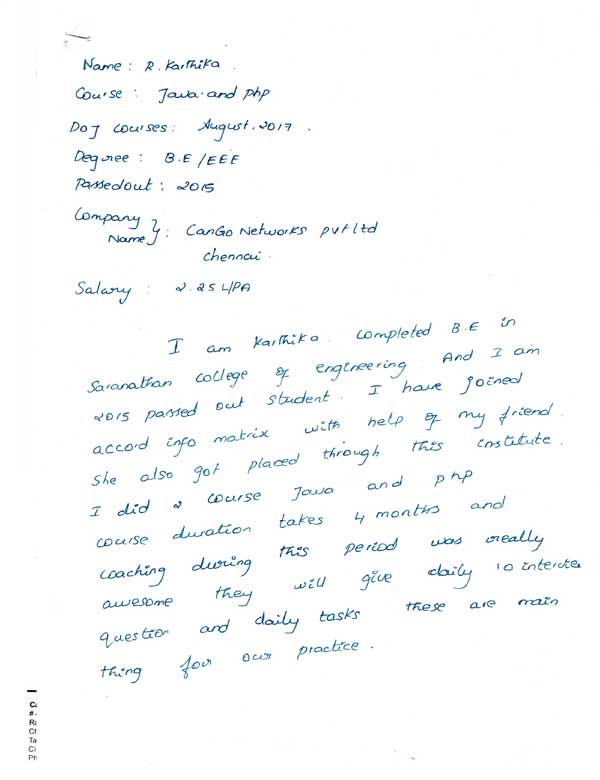 Name : R. Karthika .
Course : Java and php
DOJ courses : August . 2017 .
Degree : B.E / EEE
Passedout : 2015
Company
Name } : CanGo Networks pvt ltd
Chennai .
Salary : 2.25 L/PA
I am Karthika . Completed B.E in
Saranathan college of engineering . And I am
2015 passed out student . I have joined
accord info matrix with help of my friend .
She also got placed through this institute .
I did 2 course Java and php
course duration takes 4 months and
coaching during this period was really
awesome they will give daily 10 intervie
question and daily tasks these are main
thing for our practice .
Ca
#
Ra
Ch
Ta
Ci
Ph